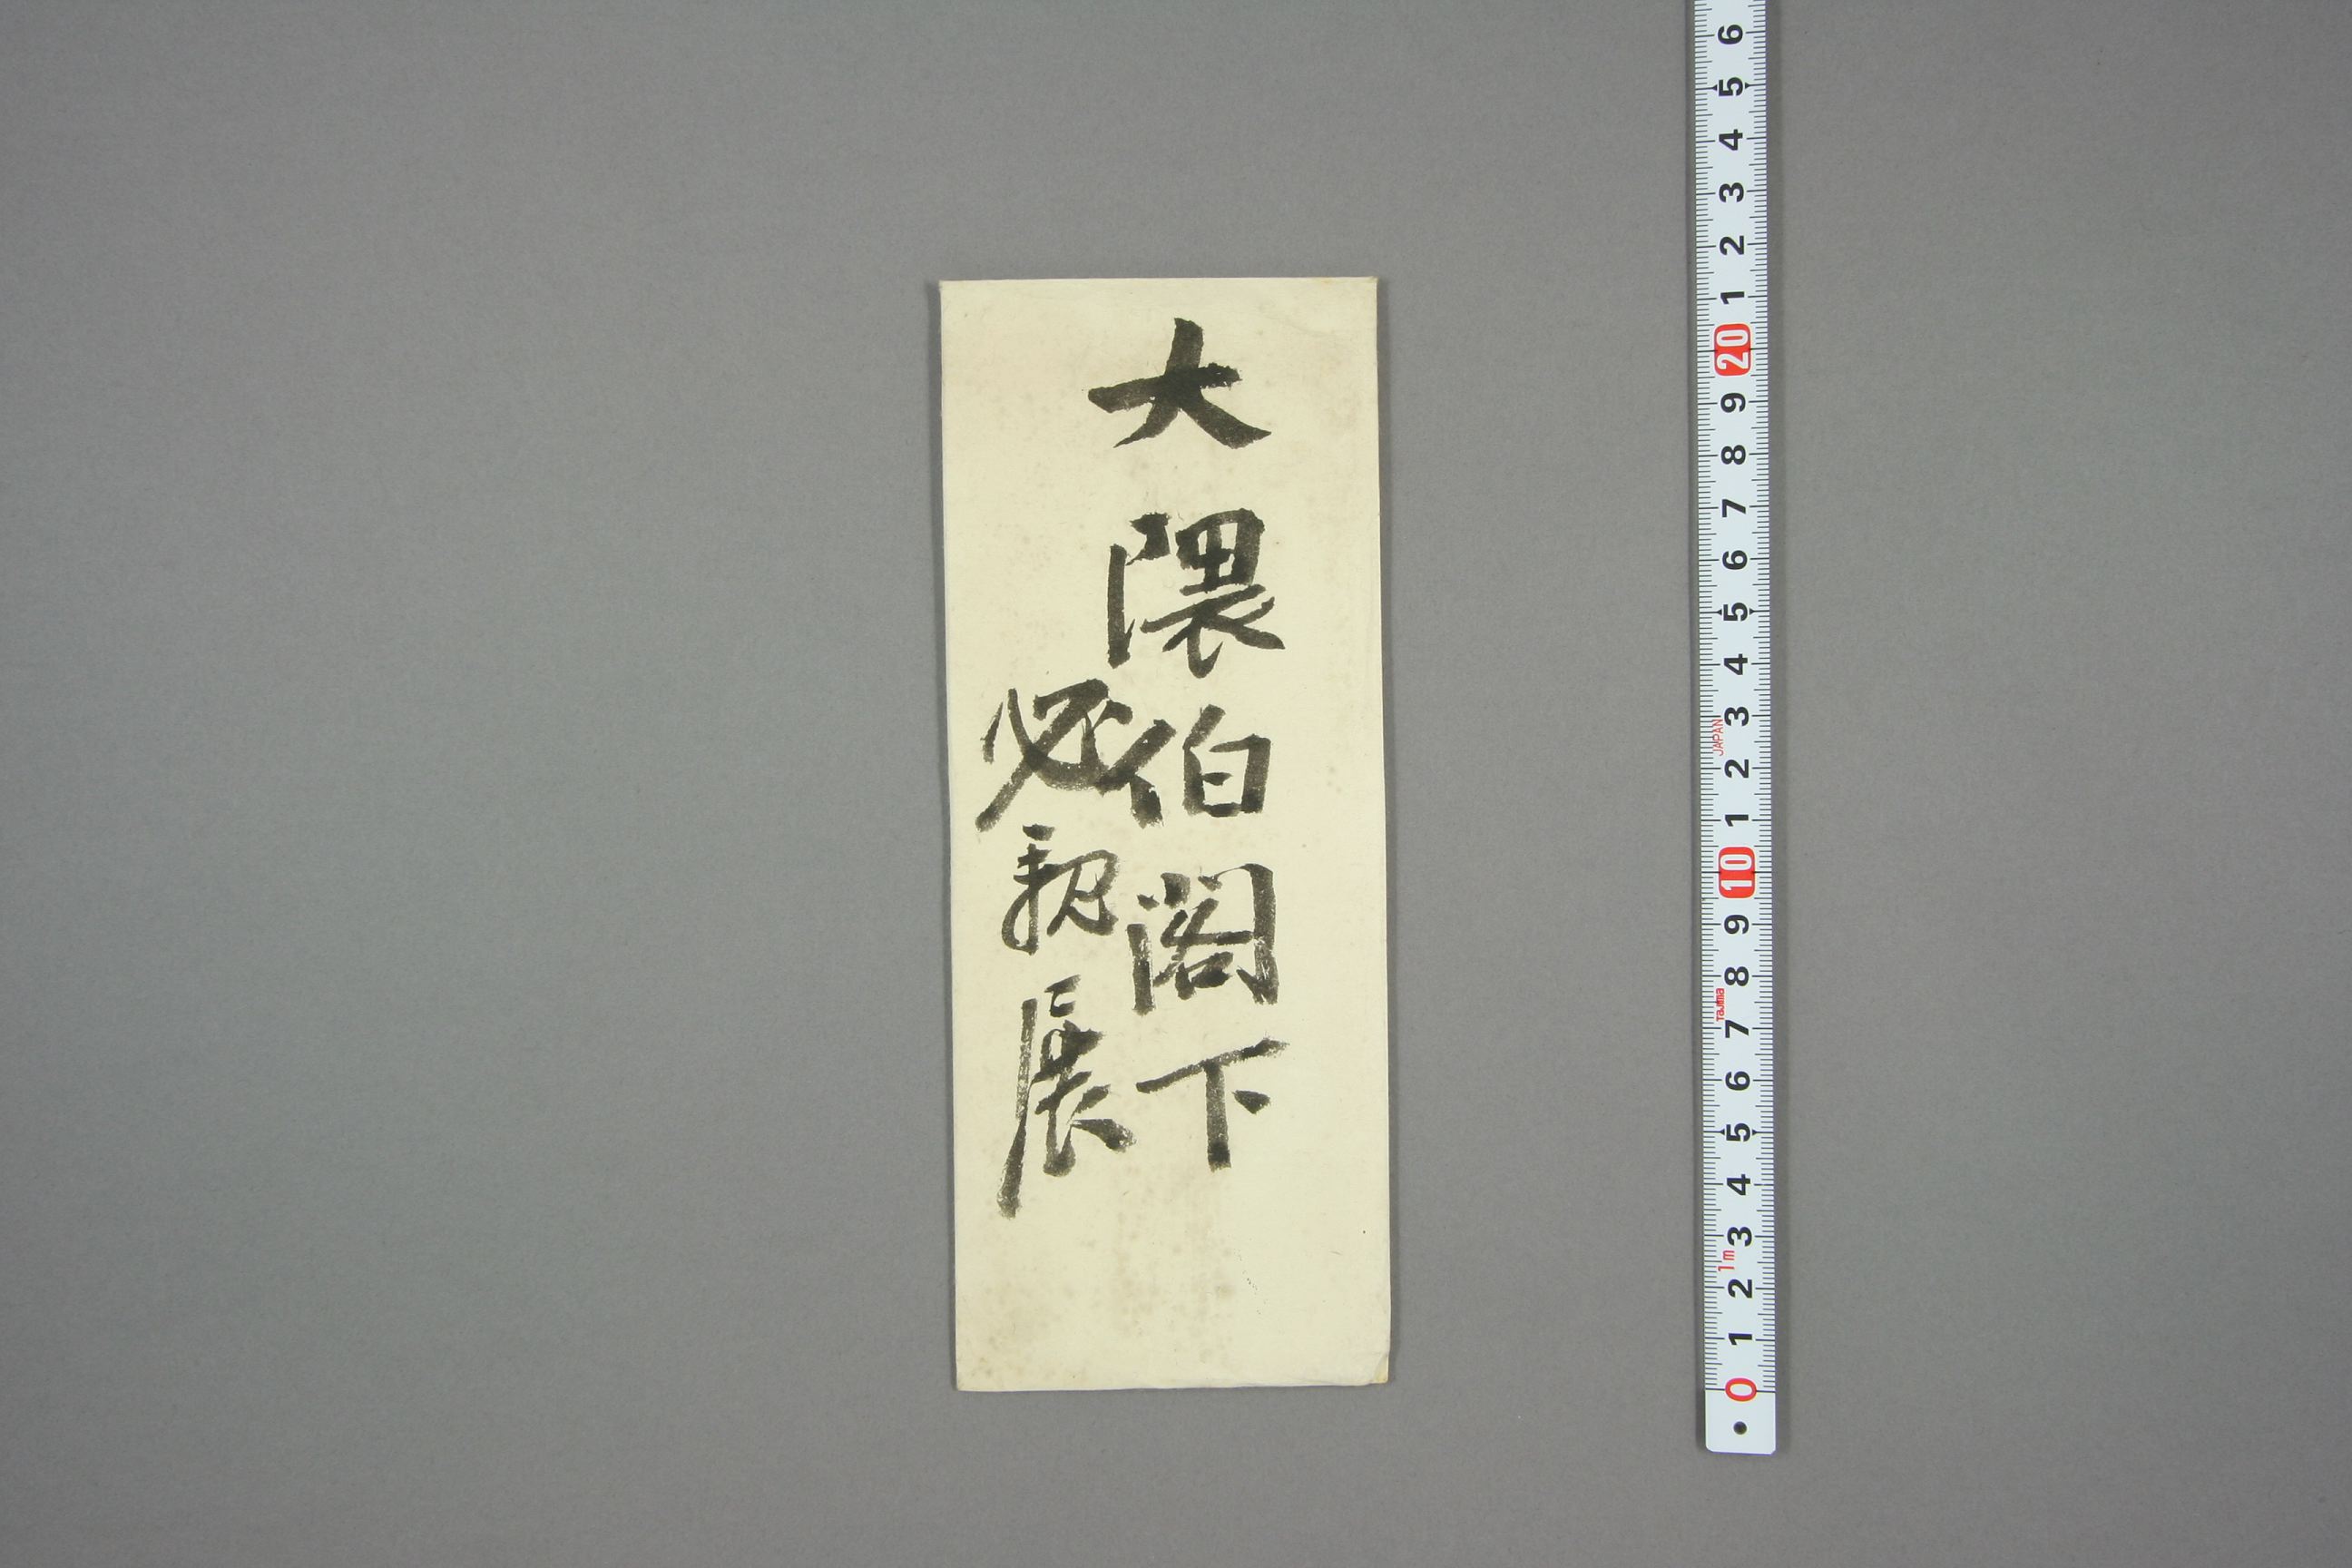 大隈伯閣下
必親展
6 5 4 3 2 1 20 9 8 7 6 5 4 3 2 1 10 9 8 7 6 5 4 3 2 1 0
JAPAN
Tajima
1m